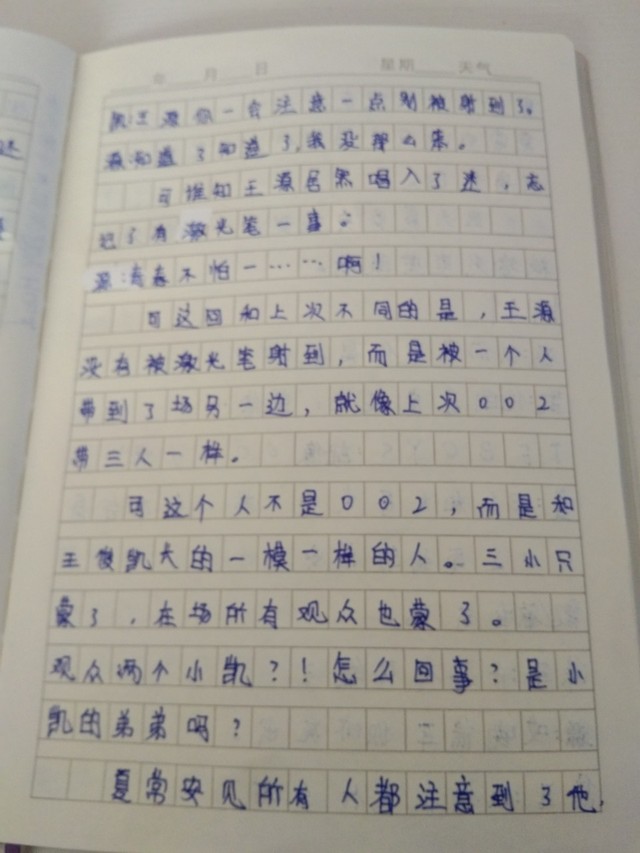 年 月 日 星期 天气
凯:王源你一会注意一点别被射到了。
源:知道了知道了,我没那么笨。
可谁知王源居然唱入了迷,忘
记了有激光笔一事。
源:青春不怕一……啊!
可这回和上次不同的是,王源
没有被激光笔射到,而是被一个人
带到了场另一边,就像上次002
带三人一样。
可这个人不是002,而是和
王俊凯长的一模一样的人。三小只
蒙了,在场所有观众也蒙了。
观众两个小凯?!怎么回事?是小
凯的弟弟吗?
夏常安见所有人都注意到了他,